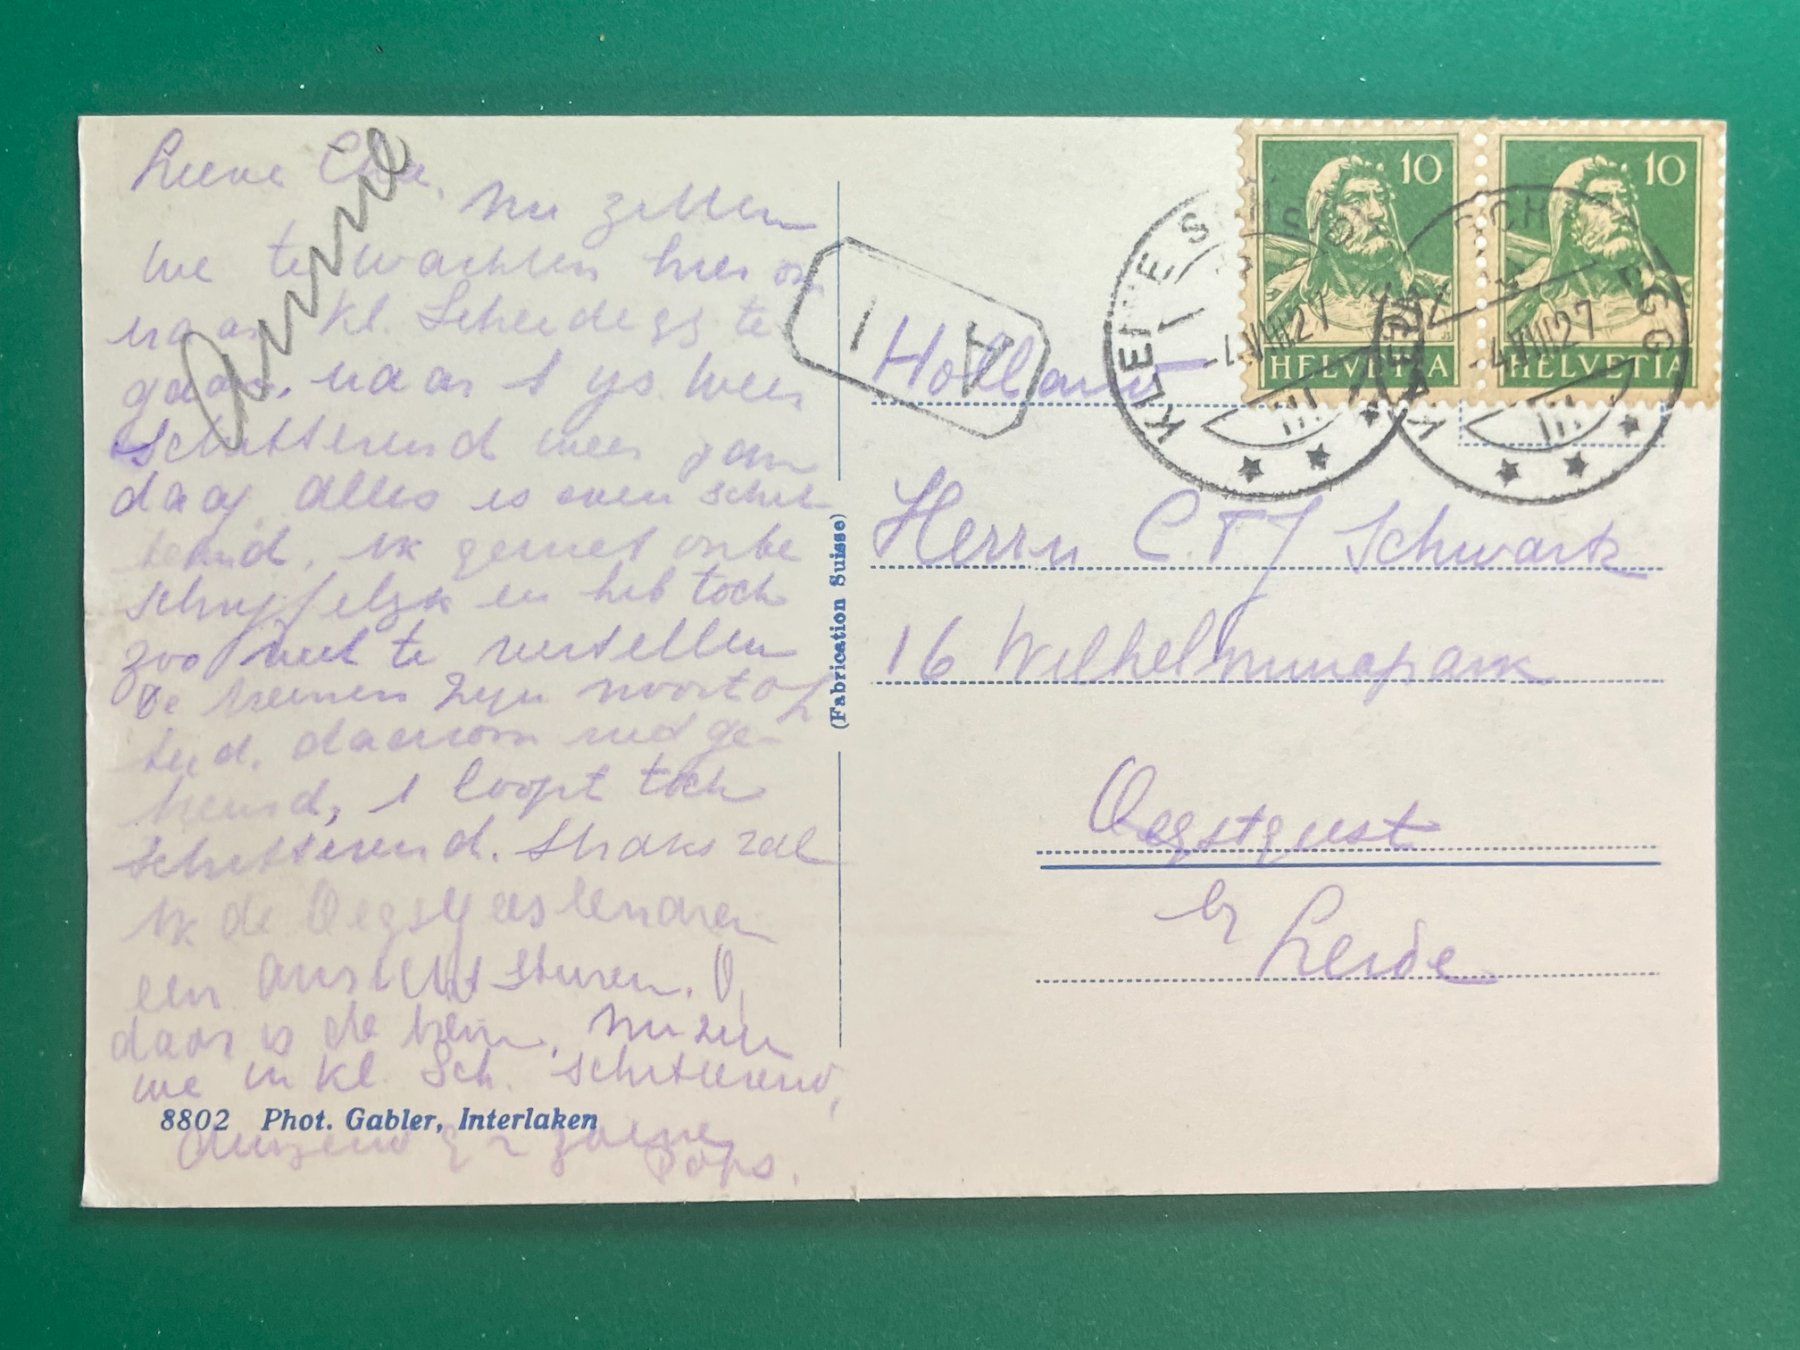 Lieve
Annie
Nu zitten
we te wachten hier om
naar Kl. Scheidegg te
gaan, naar 't ijs. Weer
schitterend weer van
daag. Alles is even schit
terend. Ik geniet onbe
schrijfelijk en heb toch
zoo veel te vertellen
De treinen zijn nooit op
tijd, daarom
't loopt toch
schitterend. Straks zal
ik de Oegstgeestenaren
een ansicht sturen. O,
daar is de trein. Nu zijn
we in Kl. Sch. Schitterend,
8802 Phot. Gabler, Interlaken
Duizend zoenen
Pops.
(Fabrication Suisse)
A 1
10 10
HELVETIA HELVETIA
KLEINE SCHEIDEGG
-4.VIII.27
-4.VIII.27
Holland
Herrn C.T.J Schwartz
16 Wilhelminapark
Oegstgeest
by Leide